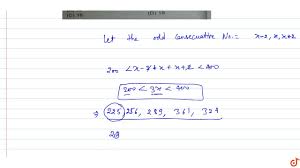 Let the odd Consecutive No.= x-2, x, x+2
200 < x-2+x+x+2 < 400
200 < 3x < 400
⇒ 225, 256, 289, 361, 324